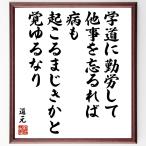 学道に勤労して
他事を忘るれば
病も
起こるまじきかと
覚ゆるなり
道元